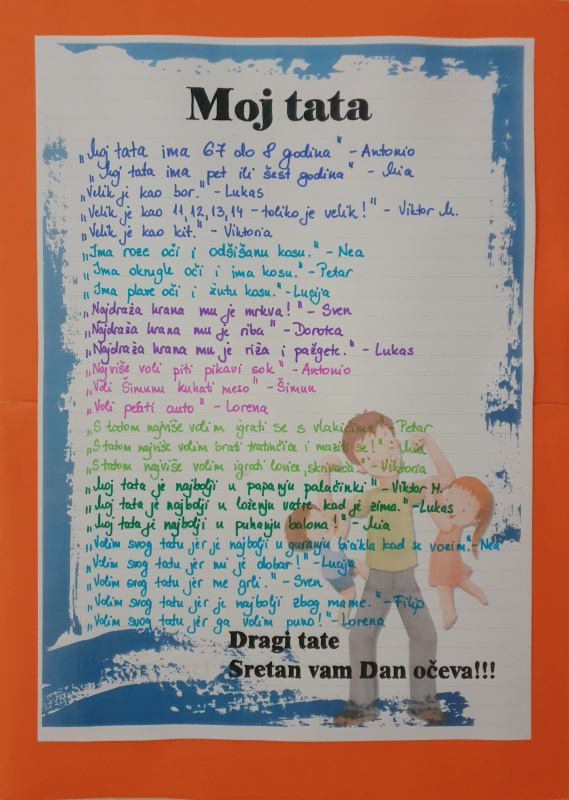 Moj tata
"Moj tata ima 67 do 8 godina" - Antonio
"Moj tata ima pet ili šest godina" - Mia
"Velik je kao bor." - Lukas
"Velik je kao 11, 12, 13, 14 - toliko je velik!" - Viktor M.
"Velik je kao kit." - Viktoria
"Ima roze oči i odšišanu kosu." - Nea
"Ima okrugle oči i ima kosu." - Petar
"Ima plave oči i žutu kosu." - Lucija
"Najdraža hrana mu je mrkva!" - Sven
"Najdraža hrana mu je riba" - Dorotea
"Najdraža hrana mu je riža i pažgete." - Lukas
"Najviše voli piti pikavi sok" - Antonio
"Voli Šimunu kuhati meso" - Šimun
"Voli pefati auto" - Lorena
"S tatom najviše volim igrati se s vlakićima" - Petar
"S tatom najviše volim brati tratinčice i maziti se!" - Mia
"S tatom najviše volim igrati lovice, skrivača" - Viktoria
"Moj tata je najbolji u papanju palačinki" - Viktor M.
"Moj tata je najbolji u loženju vatre kad je zima." - Lukas
"Moj tata je najbolji u puhanju balona!" - Mia
"Volim svog tatu jer je najbolji u guranju bicikla kad se vozim." - Nea
"Volim svog tatu jer mi je dobar!" - Lucija
"Volim svog tatu jer me grli." - Sven
"Volim svog tatu jer je najbolji zbog mame." - Filip
"Volim svog tatu jer ga volim puno!" - Lorena
Dragi tate
Sretan vam Dan očeva!!!